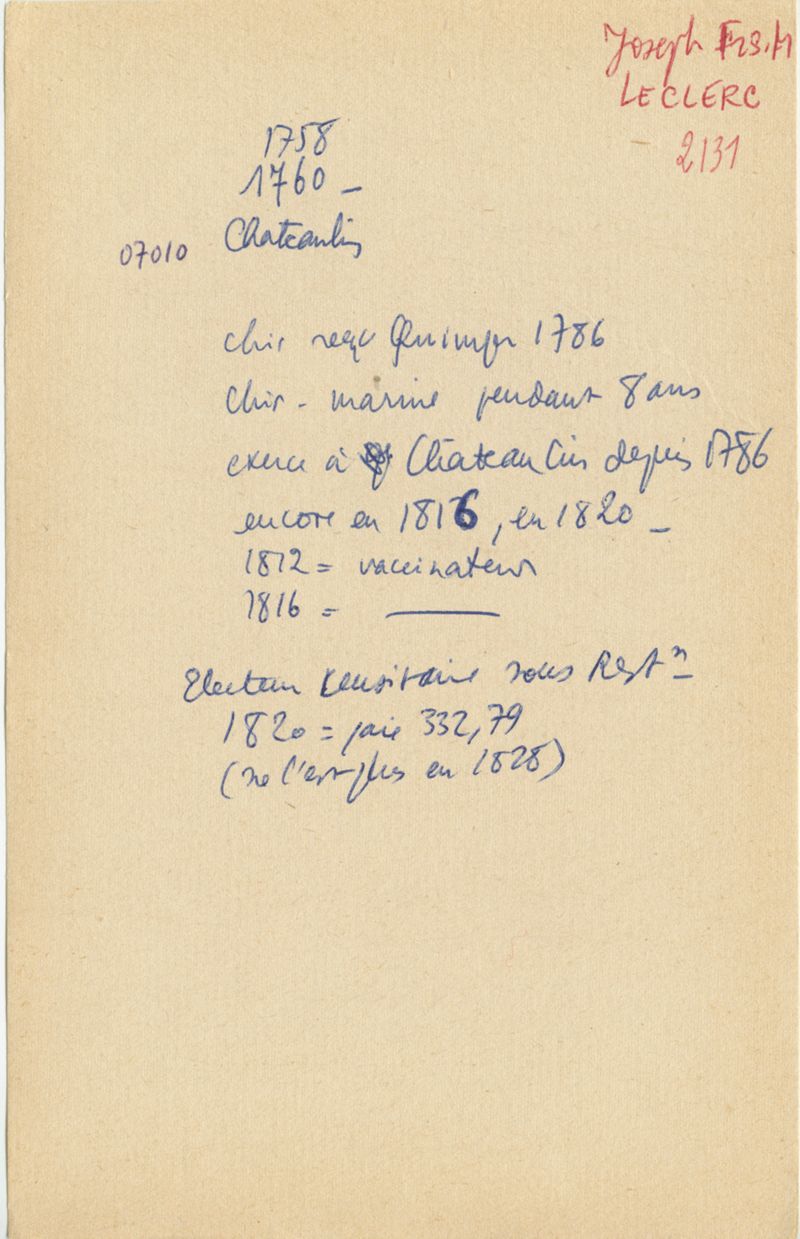 Joseph Frs. M
LECLERC
2131
1758
1760 -
07010 Chateaulin
chir reçu Quimper 1786
chir - marine pendant 8 ans
exerce à Châteaulin depuis 1786
encore en 1816, en 1820 -
1812 = vaccinateur
1816 = ———
Electeur censitaire sous Restn
1820 = paie 332,79
(ne l'est plus en 1828)